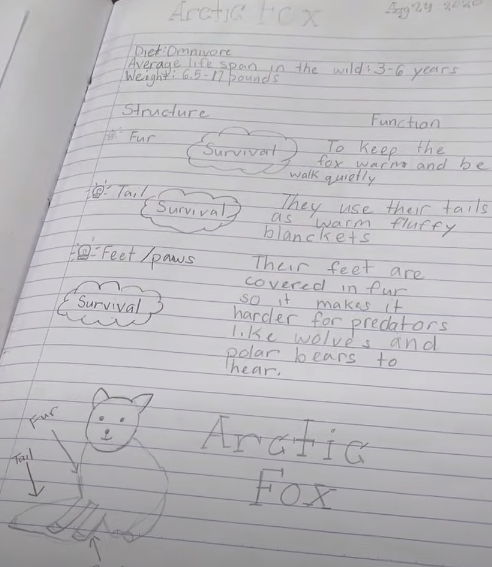 Arctic Fox
Diet: Omnivore
Average life span in the wild: 3-6 years
Weight: 6.5-17 pounds
Structure
Function
Fur
Survival
To keep the
fox warm and be
walk quietly
Tail
Survival
They use their tails
as warm fluffy
blanckets
Feet/paws
Survival
Their feet are
covered in fur
so it makes it
harder for predators
like wolves and
polar bears to
hear.
Fur
Tail
Arctic
Fox